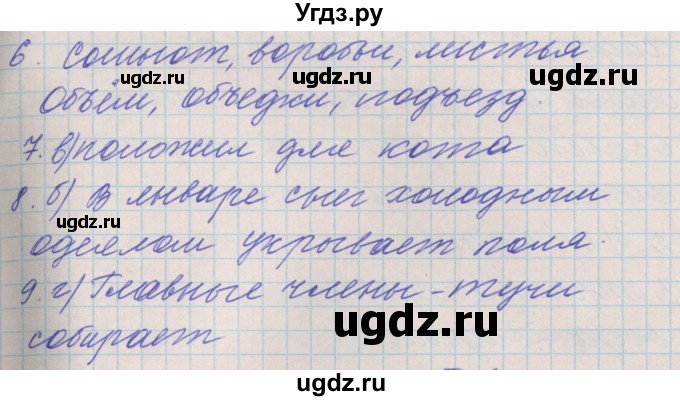 Угдз.ру
6. сошьют, воробьи, листья
Объём, объедки, подъезд.
7. в) положил для кота
8. б) В январе снег холодным
одеялом укрывает поля.
9. г) Главные члены - тучи
собирает
ugdz.ru
ugdz.ru
ugdz.ru
ugdz.ru
ugdz.ru
ugdz.ru
ugdz.ru
ugdz.ru
ugdz.ru